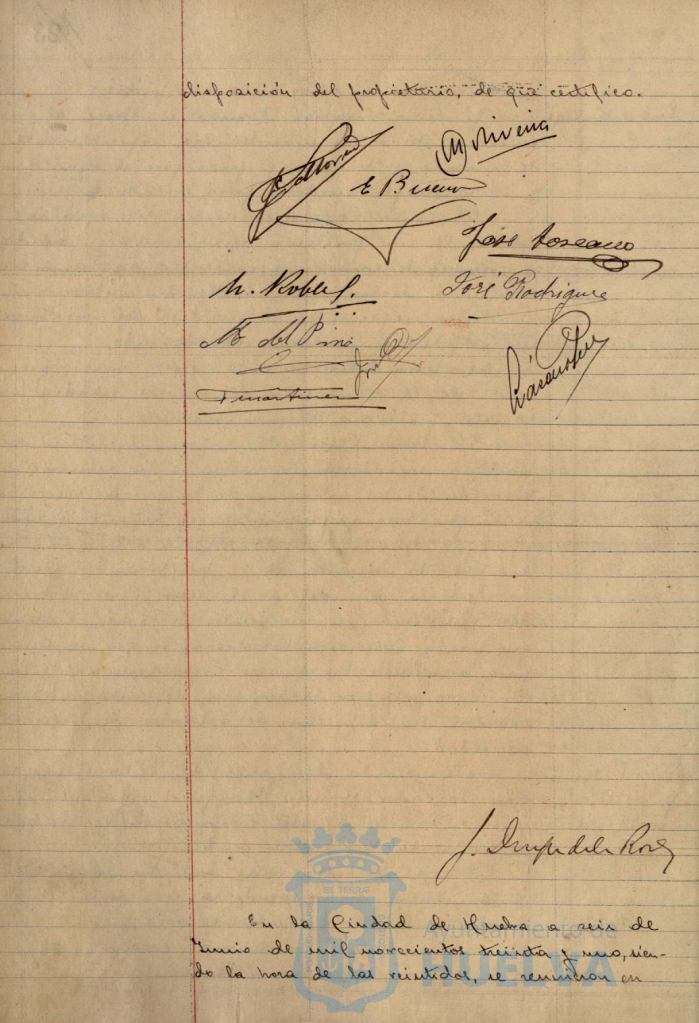 disposición del propietario, de que certifico.
E Bueno
José Toscano
M. Robles.
José Rodríguez
M del Pino
F Martinez
J. de la Rosa
En la Ciudad de Huelva a seis de
Junio de mil novecientos treinta y uno, sien-
do la hora de las veintidos, se reunieron en
Ayuntamiento de
HUELVA